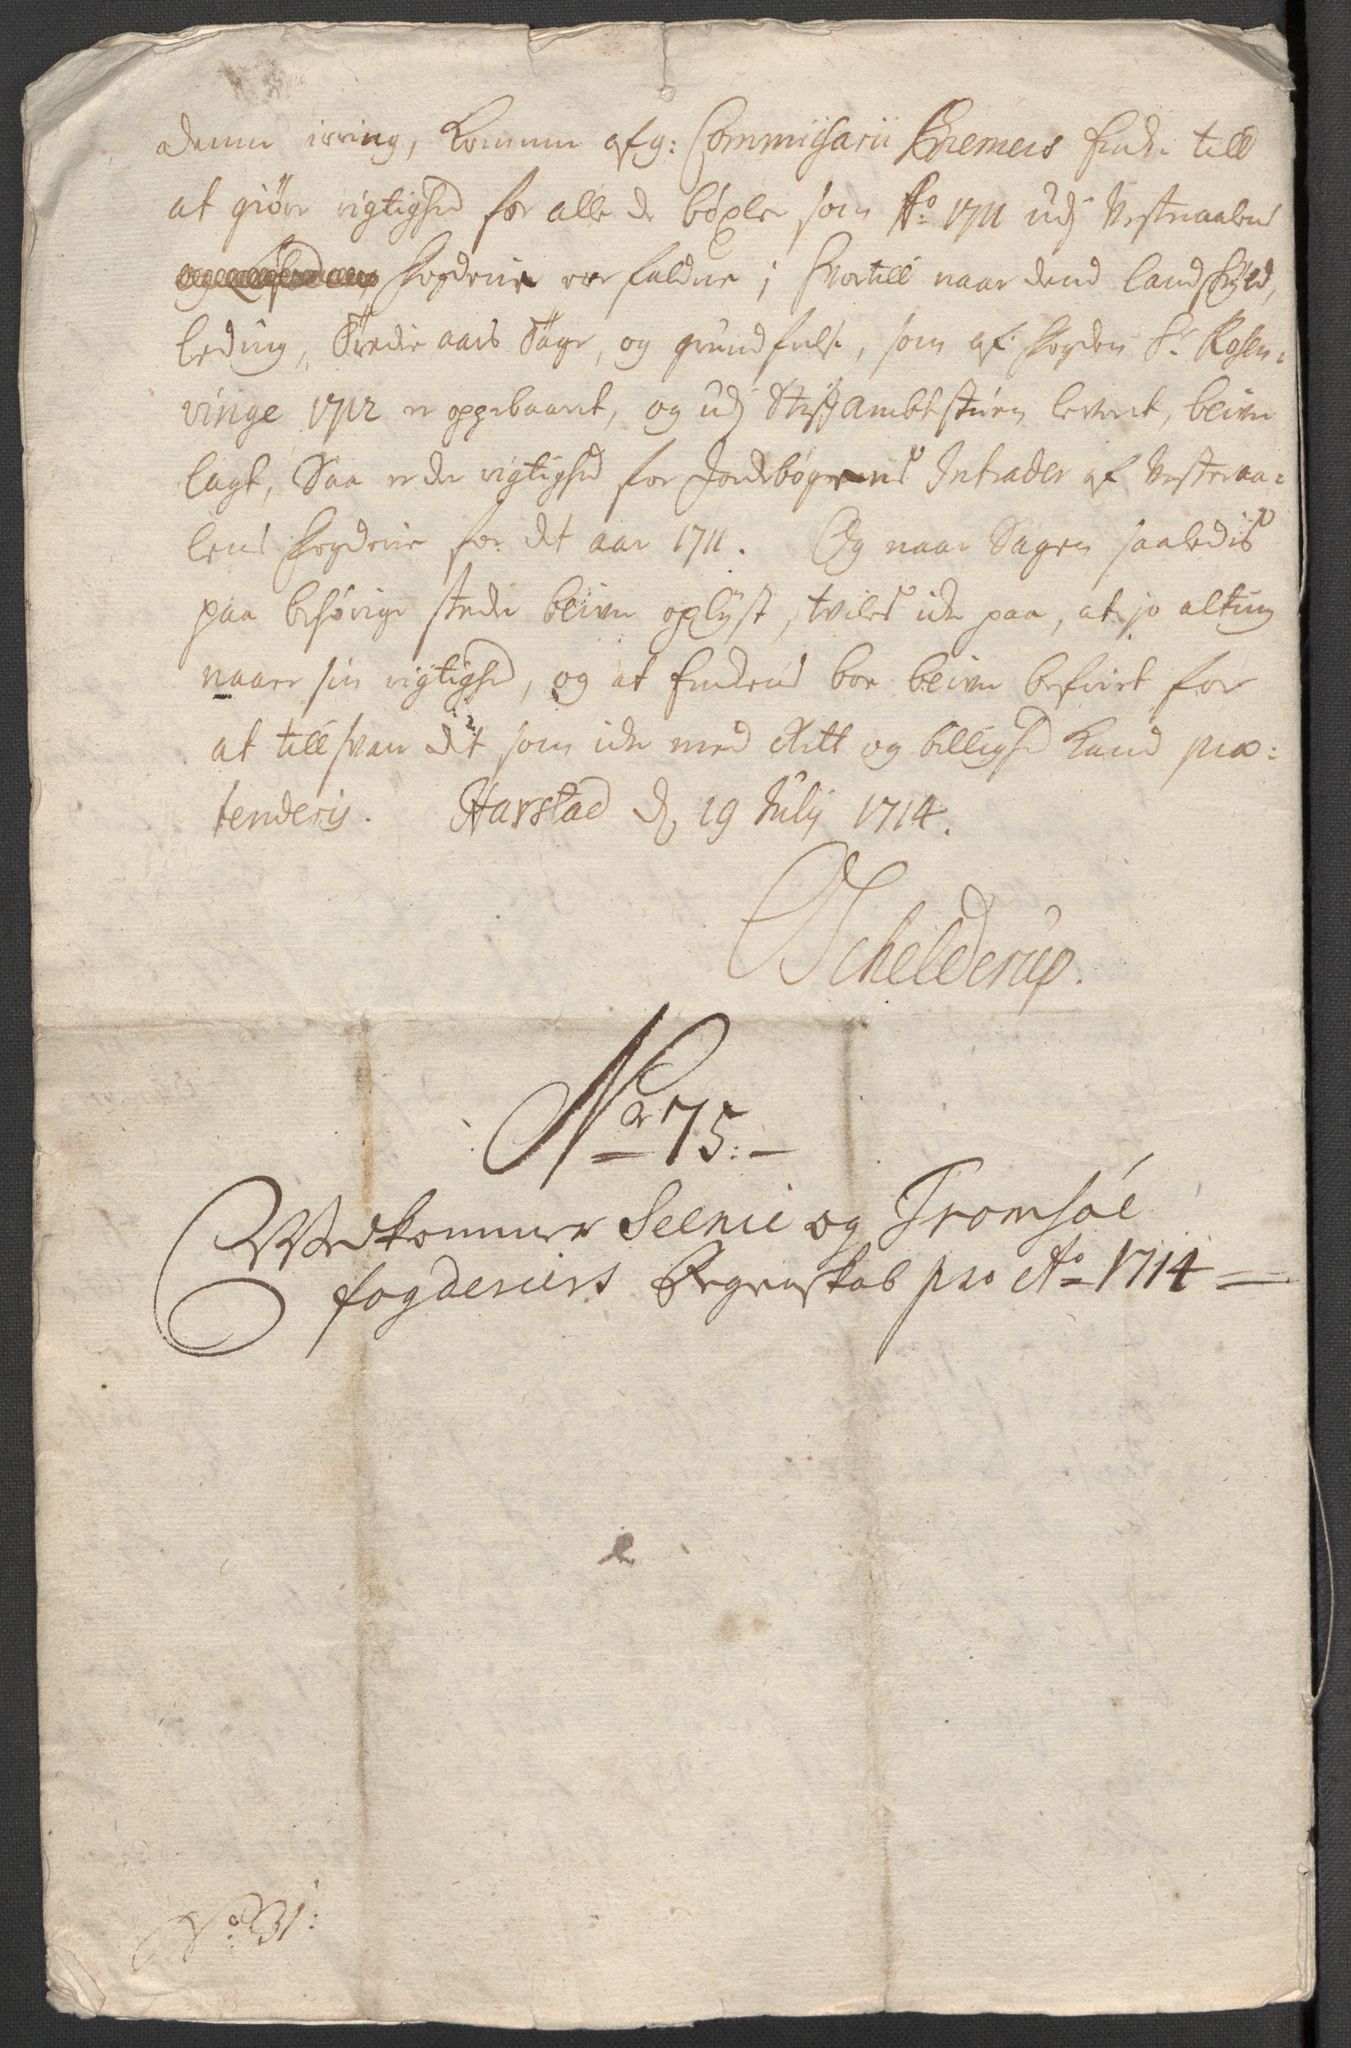 denne irring, kommer afg: Commissarii Kremers Encke till
at giøre rigtighed for alle de böxler som Ao 1711 udj Vesteraalens
fogderie ere faldne; hvortill naar dend landskyld,
leding, tredie aars tage, og grundleije, som af fogden Sr Rosen-
vinge 1712 er oppebaaret, og udj Stiftambtstuen leveret, bliver
lagt, Saa er der rigtighed for Jordebogens Intrader af Vesteraa-
lens fogderie for det aar 1711. Og naar Sagen saaledis
paa behörige steder bliver oplyst, tviles icke paa, at jo alting
naaer sin rigtighed, og at Enckens boe bliver befriet for
at till svare det som icke med Rett og billighed kand præ-
tenderis. Harstad d. 19 Julij 1714.
Schelderup.
No 75.
Vedkommer Sennie og Tromsøe
fogderiers Regenskab pro Ao 1714
No 31: